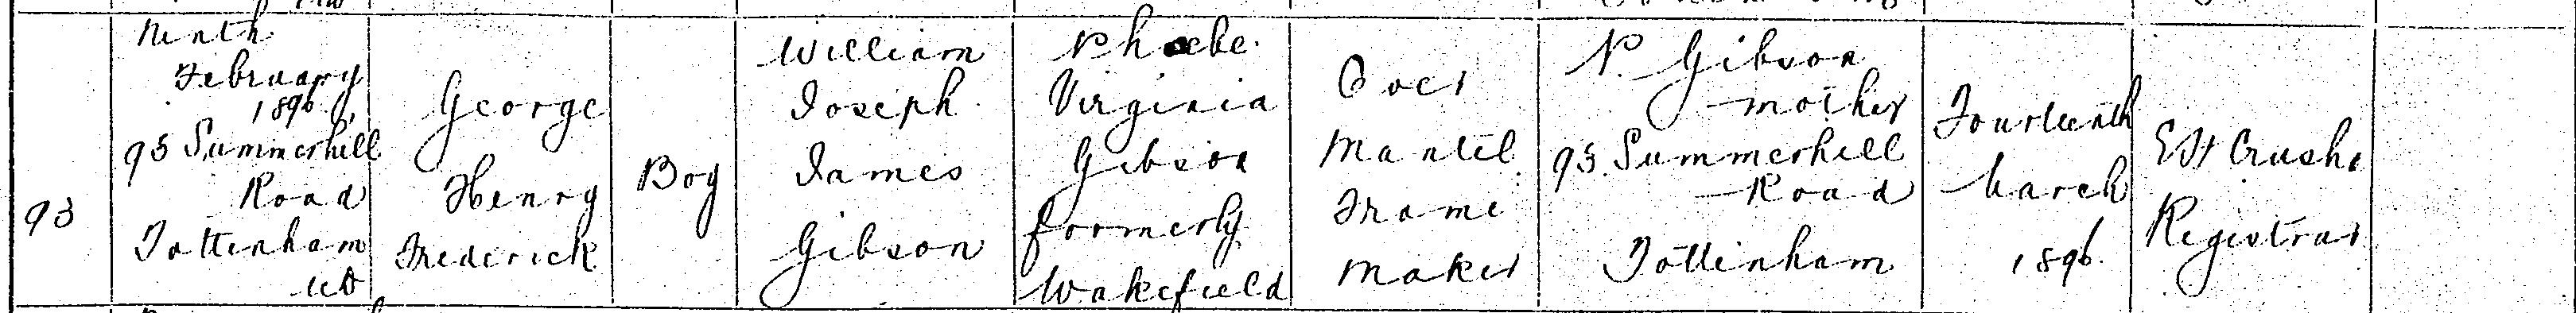 93
Ninth
February
1896
95 Summerhill
Road
Tottenham
UD
George
Henry
Frederick
Boy
William
Joseph
James
Gibson
Phoebe
Virginia
Gibson
formerly
Wakefield
Over
Mantel
Frame
Maker
P. Gibson
mother
95 Summerhill
Road
Tottenham
Fourteenth
March
1896
Registrar